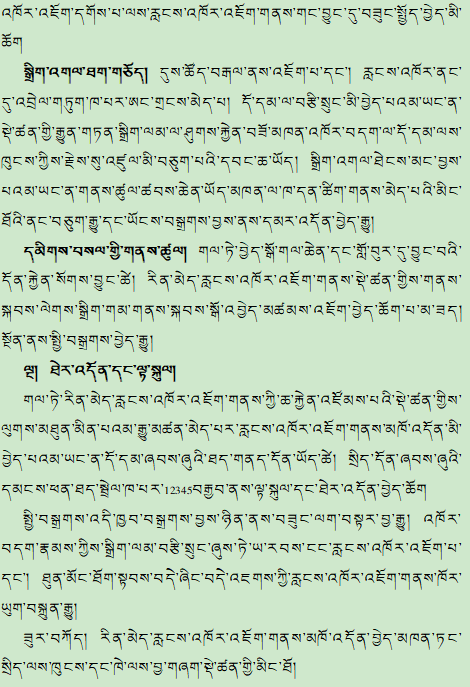 འཁོར་འཇོག་དགོས་པ་ལས་རླངས་འཁོར་འཇོག་གནས་གང་བྱུང་དུ་བཟུང་སྤྱོད་བྱེད་མི་
ཆོག
སྒྲིག་འགལ་ཐག་གཅོད། དུས་ཚོད་བརྒལ་ནས་འཇོག་པ་དང་། རླངས་འཁོར་ནང་
དུ་འབྲེལ་གཏུག་ཁ་པར་ཨང་གྲངས་མེད་པ། དོ་དམ་ལ་བརྩི་སྲུང་མི་བྱེད་པའམ་ཡང་ན་
སྡེ་ཚན་གྱི་རྒྱུན་གཏན་སྒྲིག་ལམ་ལ་ཤུགས་རྐྱེན་བཟོ་མཁན་འཁོར་བདག་ལ་དོ་དམ་ལས་
ཁུངས་ཀྱིས་རྗེས་སུ་འཛུལ་མི་བཅུག་པའི་དབང་ཆ་ཡོད། སྒྲིག་འགལ་ཐེངས་མང་བྱས་
པའམ་ཡང་ན་གནས་ཚུལ་ཚབས་ཆེན་ཡོད་མཁན་ལ་ཁ་དན་ཚིག་གནས་མེད་པའི་མིང་
ཐོའི་ནང་བཅུག་རྒྱུ་དང་ཡོངས་བསྒྲགས་བྱས་ནས་དམར་འདོན་བྱེད་རྒྱུ།
དམིགས་བསལ་གྱི་གནས་ཚུལ། གལ་ཏེ་བྱེད་སྒོ་གལ་ཆེན་དང་གློ་བུར་དུ་བྱུང་བའི་
དོན་རྐྱེན་སོགས་བྱུང་ཚེ། རིན་མེད་རླངས་འཁོར་འཇོག་གནས་སྡེ་ཚན་གྱིས་གནས་
སྐབས་ལེགས་སྒྲིག་གམ་གནས་སྐབས་སྒོ་འབྱེད་མཚམས་འཇོག་བྱེད་ཆོག་པ་མ་ཟད།
སྔོན་ནས་སྤྱི་བསྒྲགས་བྱེད་རྒྱུ།
ལྔ། ཐེར་འདོན་དང་ལྟ་སྐུལ།
གལ་ཏེ་རིན་མེད་རླངས་འཁོར་འཇོག་གནས་ཀྱི་ཆ་རྐྱེན་འཛོམས་པའི་སྡེ་ཚན་གྱིས་
ལུགས་མཐུན་མིན་པའམ་རྒྱུ་མཚན་མེད་པར་རླངས་འཁོར་འཇོག་གནས་མཁོ་འདོན་མི་
བྱེད་པའམ་ཡང་ན་དོ་དམ་ཞབས་ཞུའི་ཐད་གནད་དོན་ཡོད་ཚེ། སྲིད་དོན་ཞབས་ཞུའི་
དམངས་ཕན་ཐད་སྦྲེལ་ཁ་པར་12345བརྒྱབ་ནས་ལྟ་སྐུལ་དང་ཐེར་འདོན་བྱེད་ཆོག
སྤྱི་བསྒྲགས་འདི་ཁྱབ་བསྒྲགས་བྱས་ཉིན་ནས་བཟུང་ལག་བསྟར་བྱ་རྒྱུ། འཁོར་
བདག་རྣམས་ཀྱིས་སྒྲིག་ལམ་བརྩི་སྲུང་ཞུས་ཏེ་ཡ་རབས་ངང་རླངས་འཁོར་འཇོག་པ་
དང་། ཐུན་མོང་ཐོག་སྟབས་བདེ་ཞིང་བདེ་འཇགས་ཀྱི་རླངས་འཁོར་འཇོག་གནས་ཁོར་
ཡུག་བསྐྲུན་རྒྱུ།
ཟུར་བཀོད། རིན་མེད་རླངས་འཁོར་འཇོག་གནས་མཁོ་འདོན་བྱེད་མཁན་ཏང་
སྲིད་ལས་ཁུངས་དང་ཁེ་ལས་བྱ་གཞག་སྡེ་ཚན་གྱི་མིང་ཐོ།